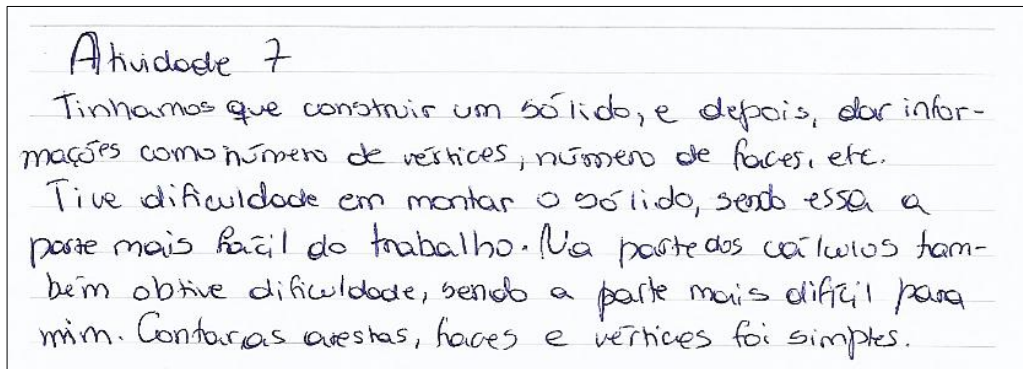 Atividade 7
Tinhamos que construir um sólido, e depois, dar infor-
mações como número de vértices, número de faces, etc.
Tive dificuldade em montar o sólido, sendo essa a
parte mais fácil do trabalho. Na parte dos cálculos tam-
bém obtive dificuldade, sendo a parte mais difícil para
mim. Contar as arestas, faces e vértices foi simples.